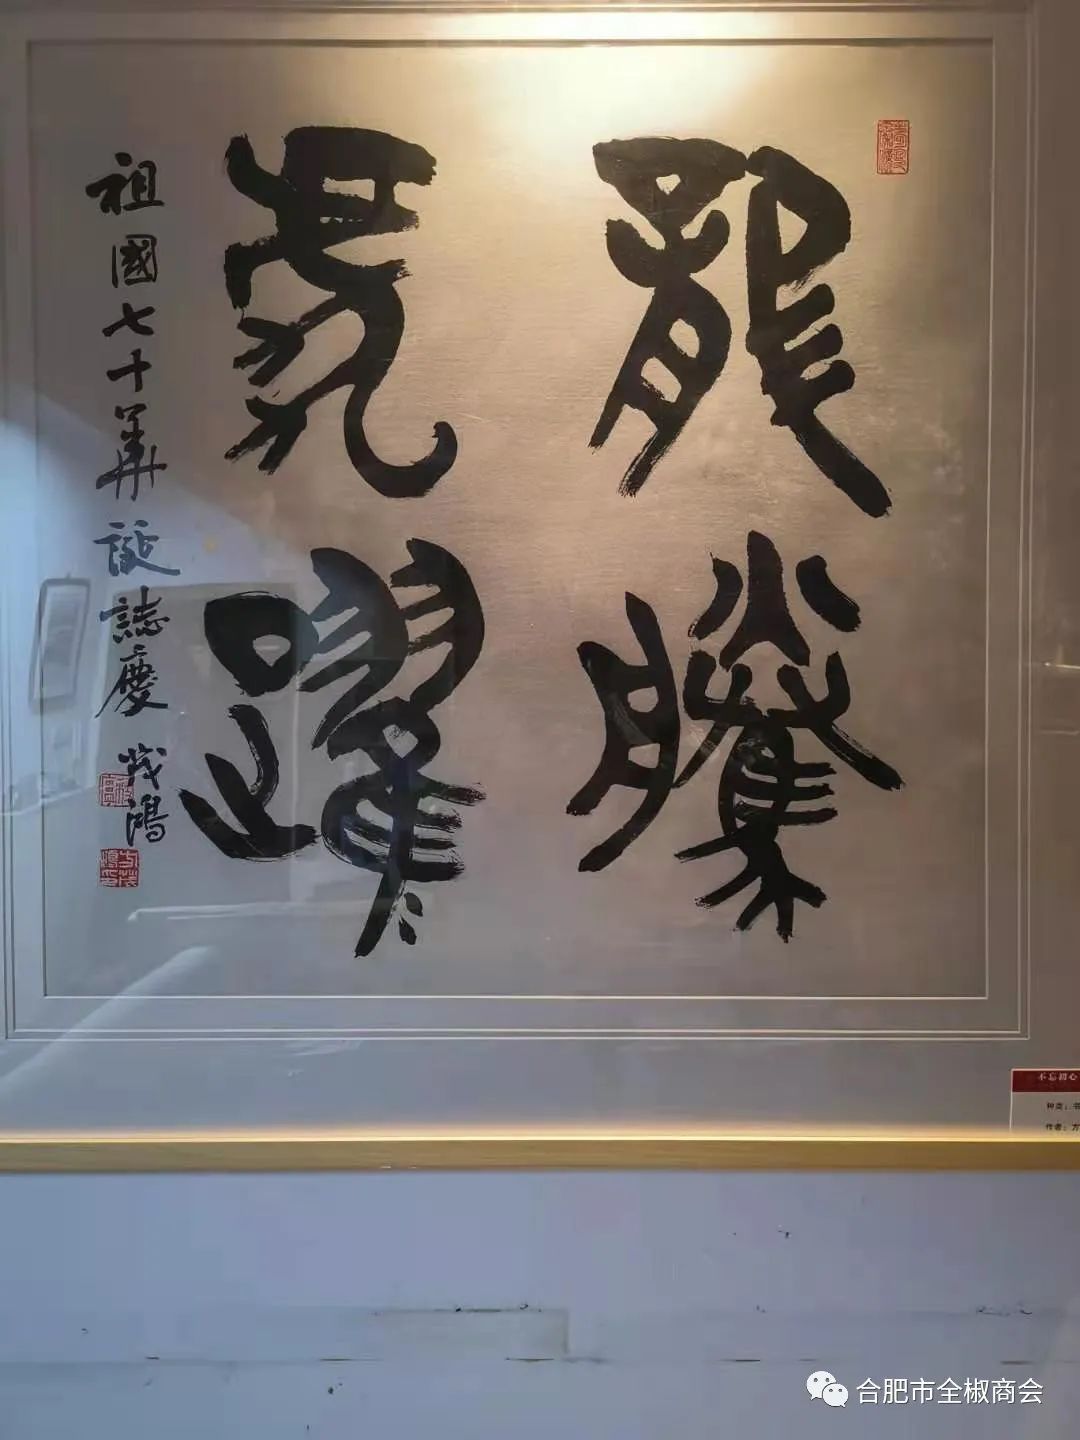 龍騰
虎躍
祖國七十華誕誌慶
茂鴻
不忘初心
种类：书
作者：方
合肥市全椒商会